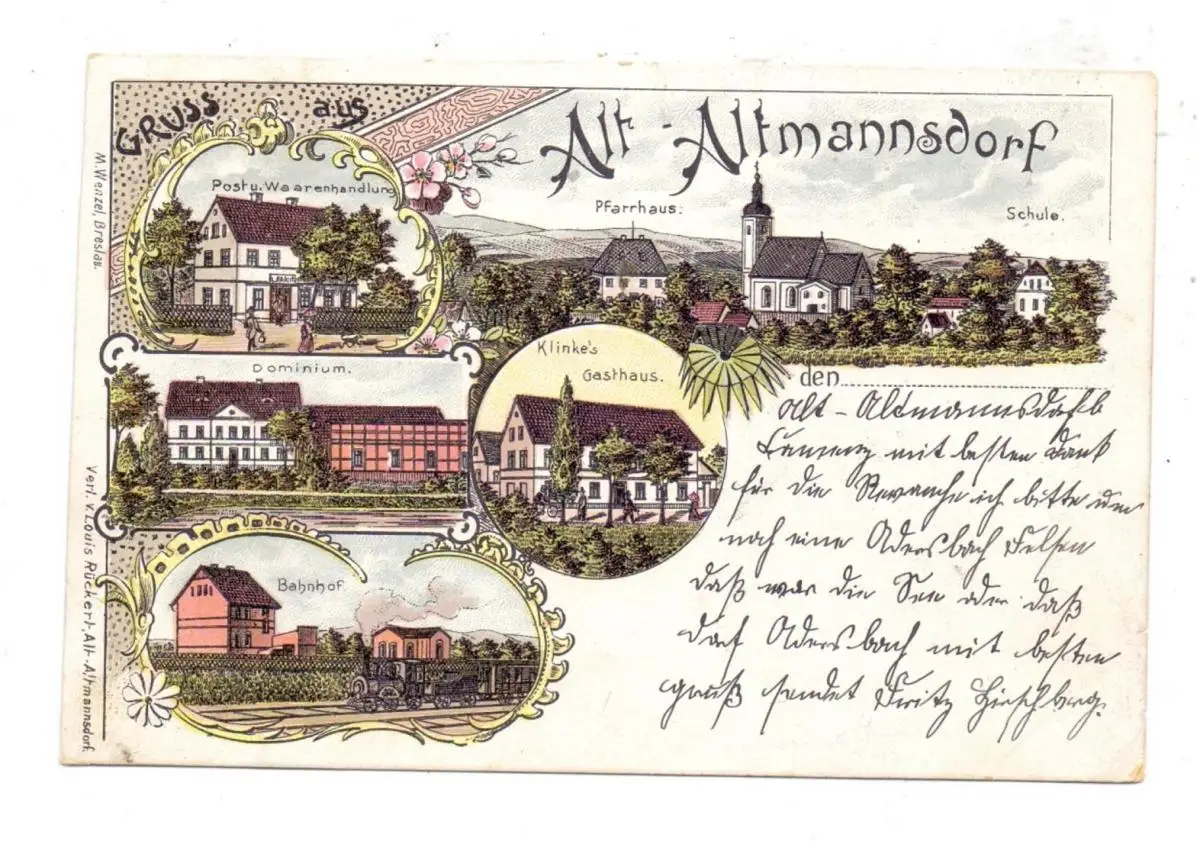 GRUSS aus
Alt-Altmannsdorf
Post u. Waarenhandlung
Pfarrhaus.
Schule.
Dominium.
Klinke's
Gasthaus.
Bahnhof
M. Wenzel, Breslau.
Verl. v. Louis Rückert, Alt-Altmannsdorf.
den
Alt-Altmannsdorf b
mit besten Dank
für die Revanche ich bitte um
noch eine Adersbach Felsen
daß war die See oder daß
Adersbach mit besten
gruß sendet Fritz Hirschberg.